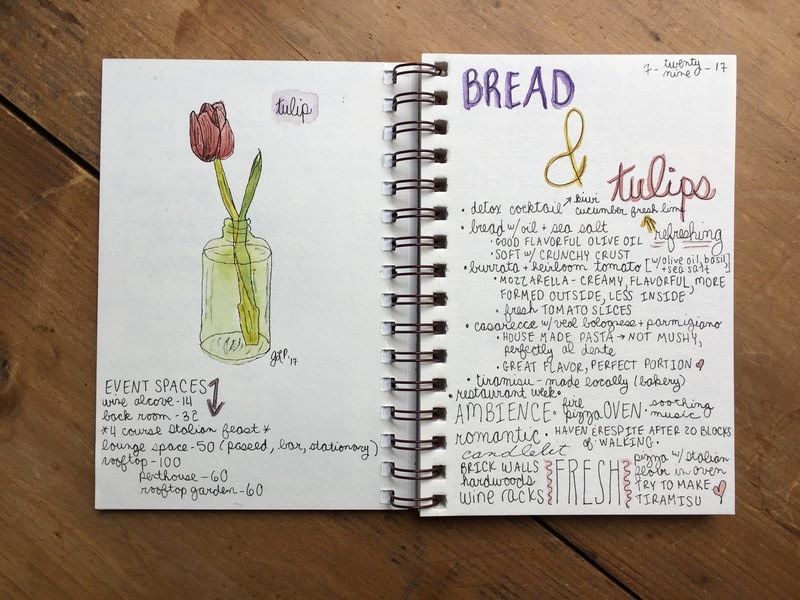 tulip
gap '17
EVENT SPACES
wine alcove - 14
back room - 32
*4 course Italian feast*
lounge space - 50 (passed, bar, stationary)
rooftop - 100
penthouse - 60
rooftop garden - 60
7 - twenty nine - 17
BREAD
&
tulips
• detox cocktail ↗ kiwi
cucumber fresh lime
refreshing
• bread w/ oil + sea salt
• GOOD FLAVORFUL OLIVE OIL
• SOFT W/ CRUNCHY CRUST
• burrata + heirloom tomato [w/ olive oil, basil,
+ sea salt]
• MOZZARELLA - CREAMY, FLAVORFUL, MORE
FORMED OUTSIDE, LESS INSIDE
• fresh TOMATO SLICES
• casarecce w/ veal bolognese + parmigiano
• HOUSE MADE PASTA → NOT MUSHY,
perfectly al dente
• GREAT FLAVOR, PERFECT PORTION
• tiramisu - made locally (bakery)
• restaurant week •
AMBIENCE • fire pizza OVEN • soothing music
romantic • HAVEN & RESPITE AFTER 20 BLOCKS
of WALKING •
candlelit
BRICK WALLS
hardwoods
wine racks
FRESH
pizza w/ Italian
flour in oven
TRY TO MAKE
TIRAMISU